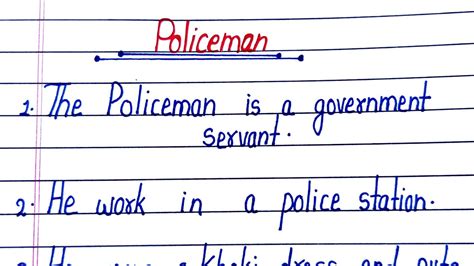 Policeman
1. The Policeman is a government
servant.
2. He work in a police station.
a khaki dress and